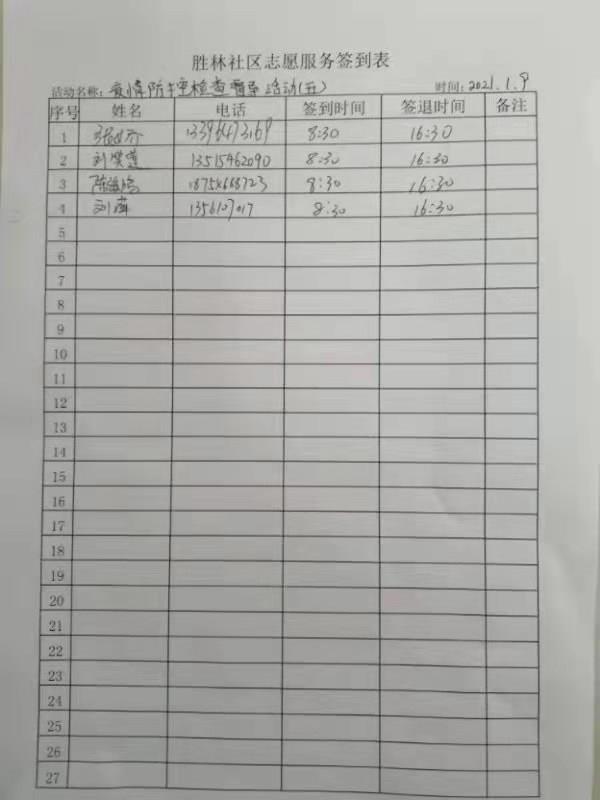 胜林社区志愿服务签到表
活动名称: 疫情防控检查督导活动(五) 时间: 2021.1.9
序号 姓名 电话 签到时间 签退时间 备注
1 8:30 16:30
2 13515462090 8:30 16:30
3 8:30 16:30
4 刘萍 8:30 16:30
5
6
7
8
9
10
11
12
13
14
15
16
17
18
19
20
21
22
23
24
25
26
27